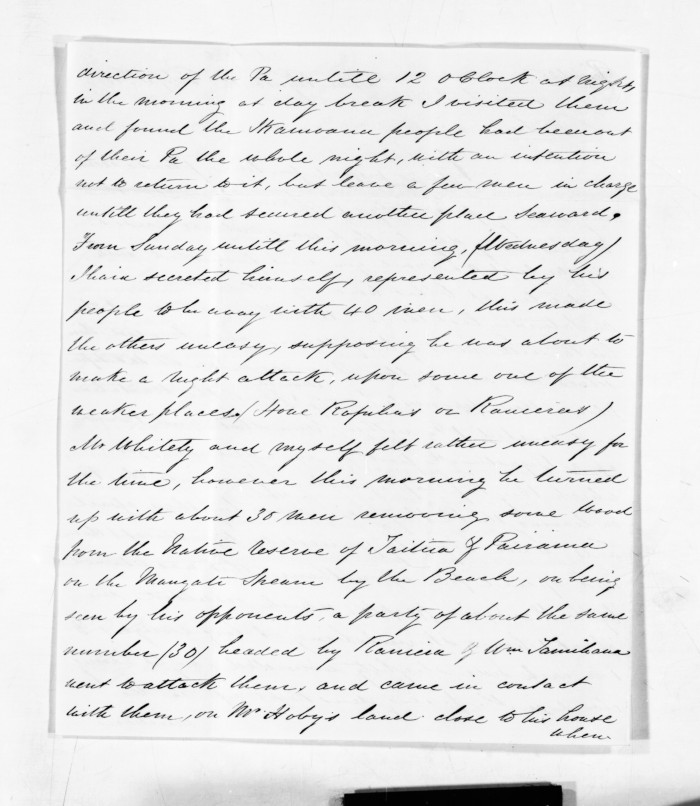 direction of the Pa untill 12 oClock at night,
in the morning at day break I visited them
and found the people had been out
of their Pa the whole night, with an intention
not to return to it, but leave a few men in charge
untill they had secured another place Seaward.
From Sunday untill this morning, (Wednesday)
Ihaia secreted himself, represented by his
people to be away with 40 men, this made
the others uneasy, supposing he was about to
make a night attack, upon some one of the
weaker places (Hone or Ramieras)
Mr Whitely and myself felt rather uneasy for
the time, however this morning he turned
up with about 30 men removing some wood
from the Native reserve of Taitua & Pairama
on the Mangati Stream by the Beach, on being
seen by his opponents, a party of about the same
number (30) headed by Ramiera & Wm Tamihana
went to attack them, and came in contact
with them, on Mr Hoby's land close to his house
when